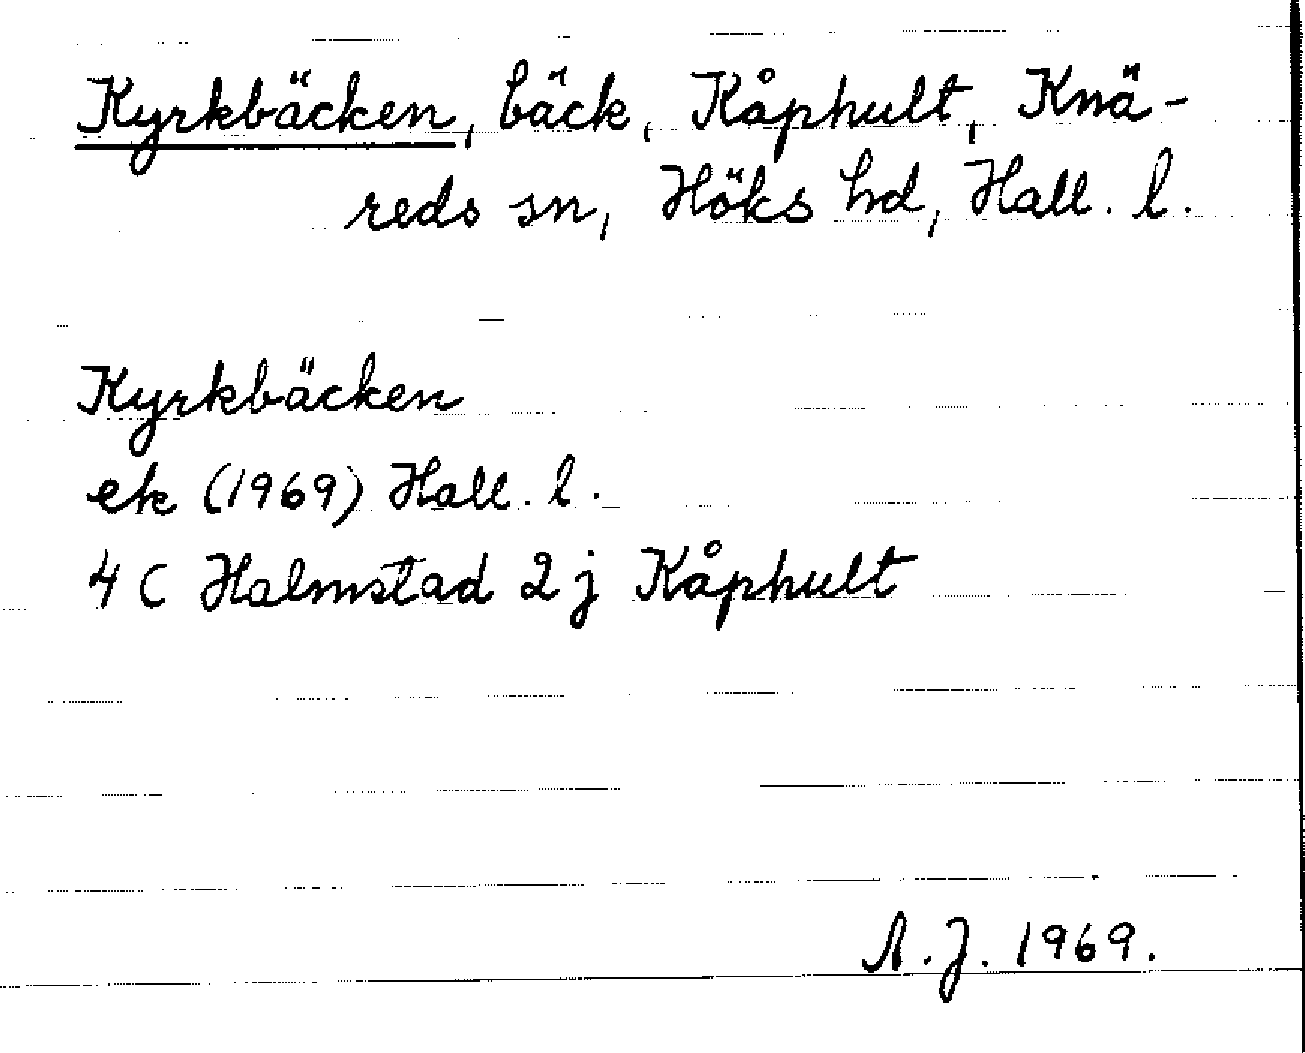 Kyrkbäcken, bäck, Kåphult, Knä-
reds sn, Höks hd, Hall. l.
Kyrkbäcken
ek (1969) Hall. l.
4 C Halmstad 2 j Kåphult
A. J. 1969.